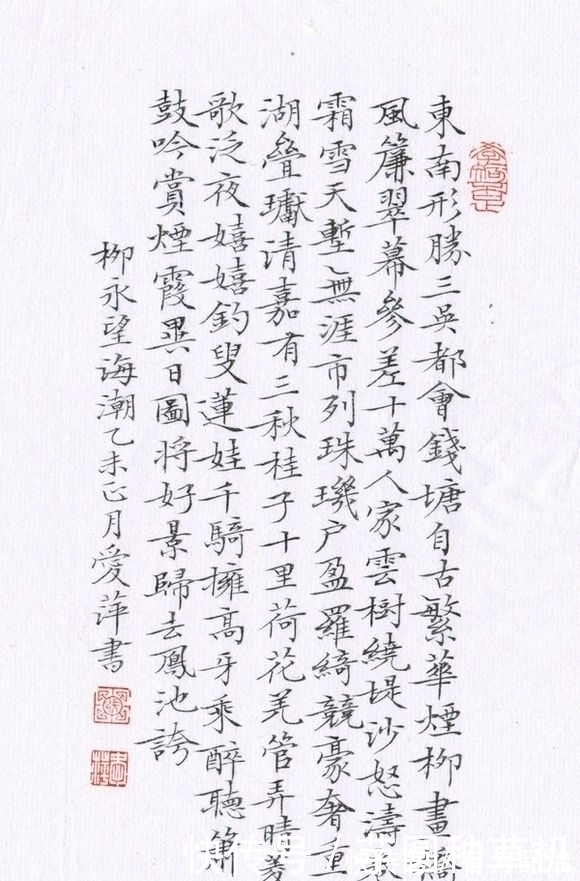 東南形勝三吳都會錢塘自古繁華煙柳畫橋
風簾翠幕參差十萬人家雲樹繞堤沙怒濤卷
霜雪天塹無涯市列珠璣户盈羅綺競豪奢重
湖疊瓛清嘉有三秋桂子十里荷花羌管弄晴菱
歌泛夜嬉嬉釣叟蓮娃千騎擁高牙乘醉聽簫
鼓吟賞煙霞異日圖將好景歸去鳳池誇
柳永望海潮乙未正月愛萍書
快传号